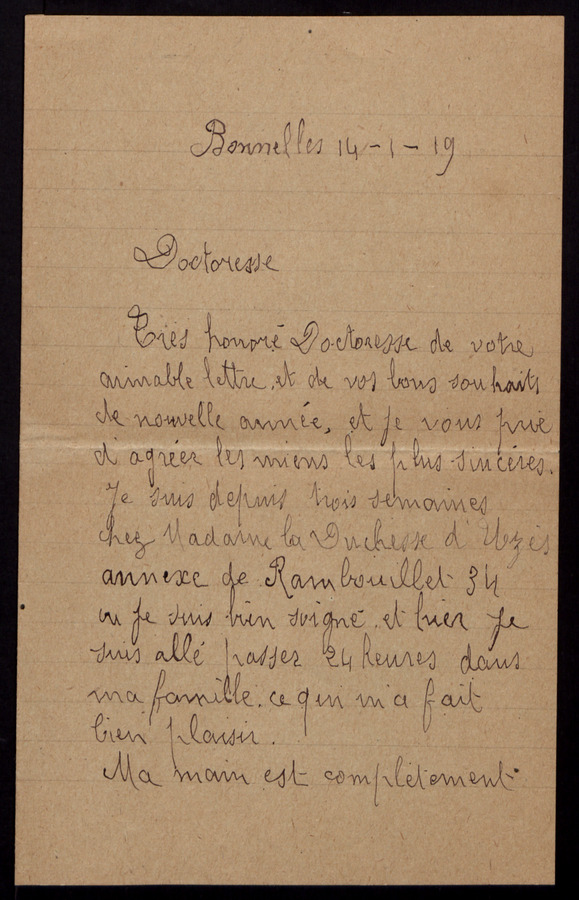 Bonnelles 14-1-19
Doctoresse
Très honoré Doctoresse de votre
aimable lettre, et de vos bons souhaits
de nouvelle année, et je vous prie
d'agréer les miens les plus sincères.
Je suis depuis trois semaines
chez Madame la Duchesse d'Uzès
annexe de Rambouillet 34
ou je suis bien soigné. et hier je
suis allé passer 24 heures dans
ma famille. ce qui m'a fait
bien plaisir.
Ma main est complètement